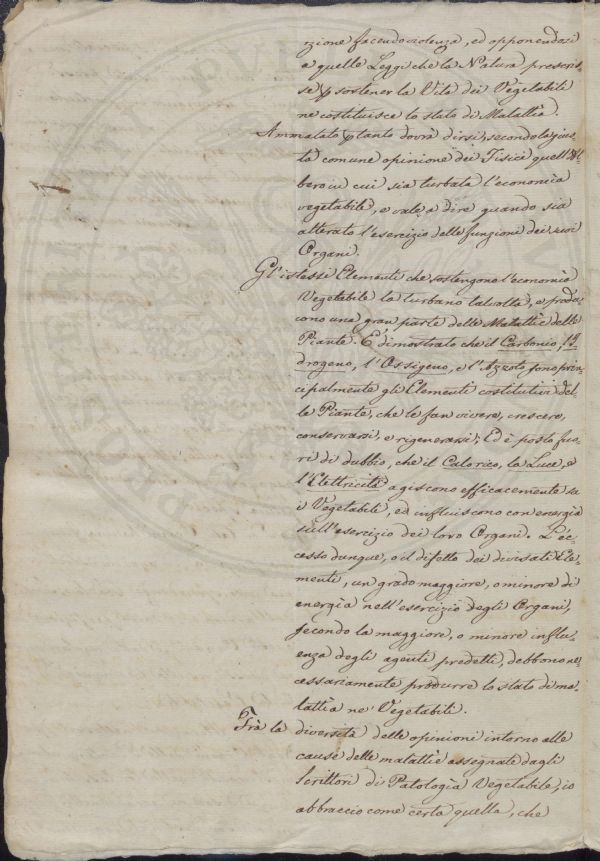 zione facendo violenza, ed opponendosi
a quelle Leggi che la Natura prescris-
se p sostener la Vita dei Vegetabili
ne costituisce lo stato di Malattìa.
Ammalato ptanto dovrà dirsi, secondo la gius-
ta comune opinione dei Fisici quell'Al-
bero in cui sia turbata l'economìa
vegetabile, e vale a dire quando sia
alterato l'esercizio delle funzioni dei suoi
Organi.
Gl'istessi Elementi che sostengono l'economìa
Vegetabile la turbano talvolta, e produ-
cono una gran parte delle Malattìe delle
Piante. E' dimostrato che il Carbonio, l'I-
drogeno, l'Ossigeno, e l'Azzoto sono prin-
cipalmente gli Elementi costitutivi del-
le Piante, che le fan vivere, crescere,
conservarsi, e rigenerarsi; Ed è posto fuo-
ri di dubbio, che il Calorico, la Luce, e
l'Elettricità agiscono efficacemente su
i Vegetabili, ed influiscono con energìa
sull'esercizio dei loro Organi. L'ec-
cesso dunque, o il difetto dei divisati Ele-
menti, un grado maggiore, o minore di
energìa nell'esercizio degli Organi,
secondo la maggiore, o minore influ-
enza degli agenti predetti, debbono ne-
cessariamente produrre lo stato di ma-
lattìa ne' Vegetabili.
Trà la diversità delle opinioni intorno alle
cause delle malattìe assegnate dagli
Scrittori di Patologìa Vegetabile, io
abbraccio come certa quella, che
PUPILLI